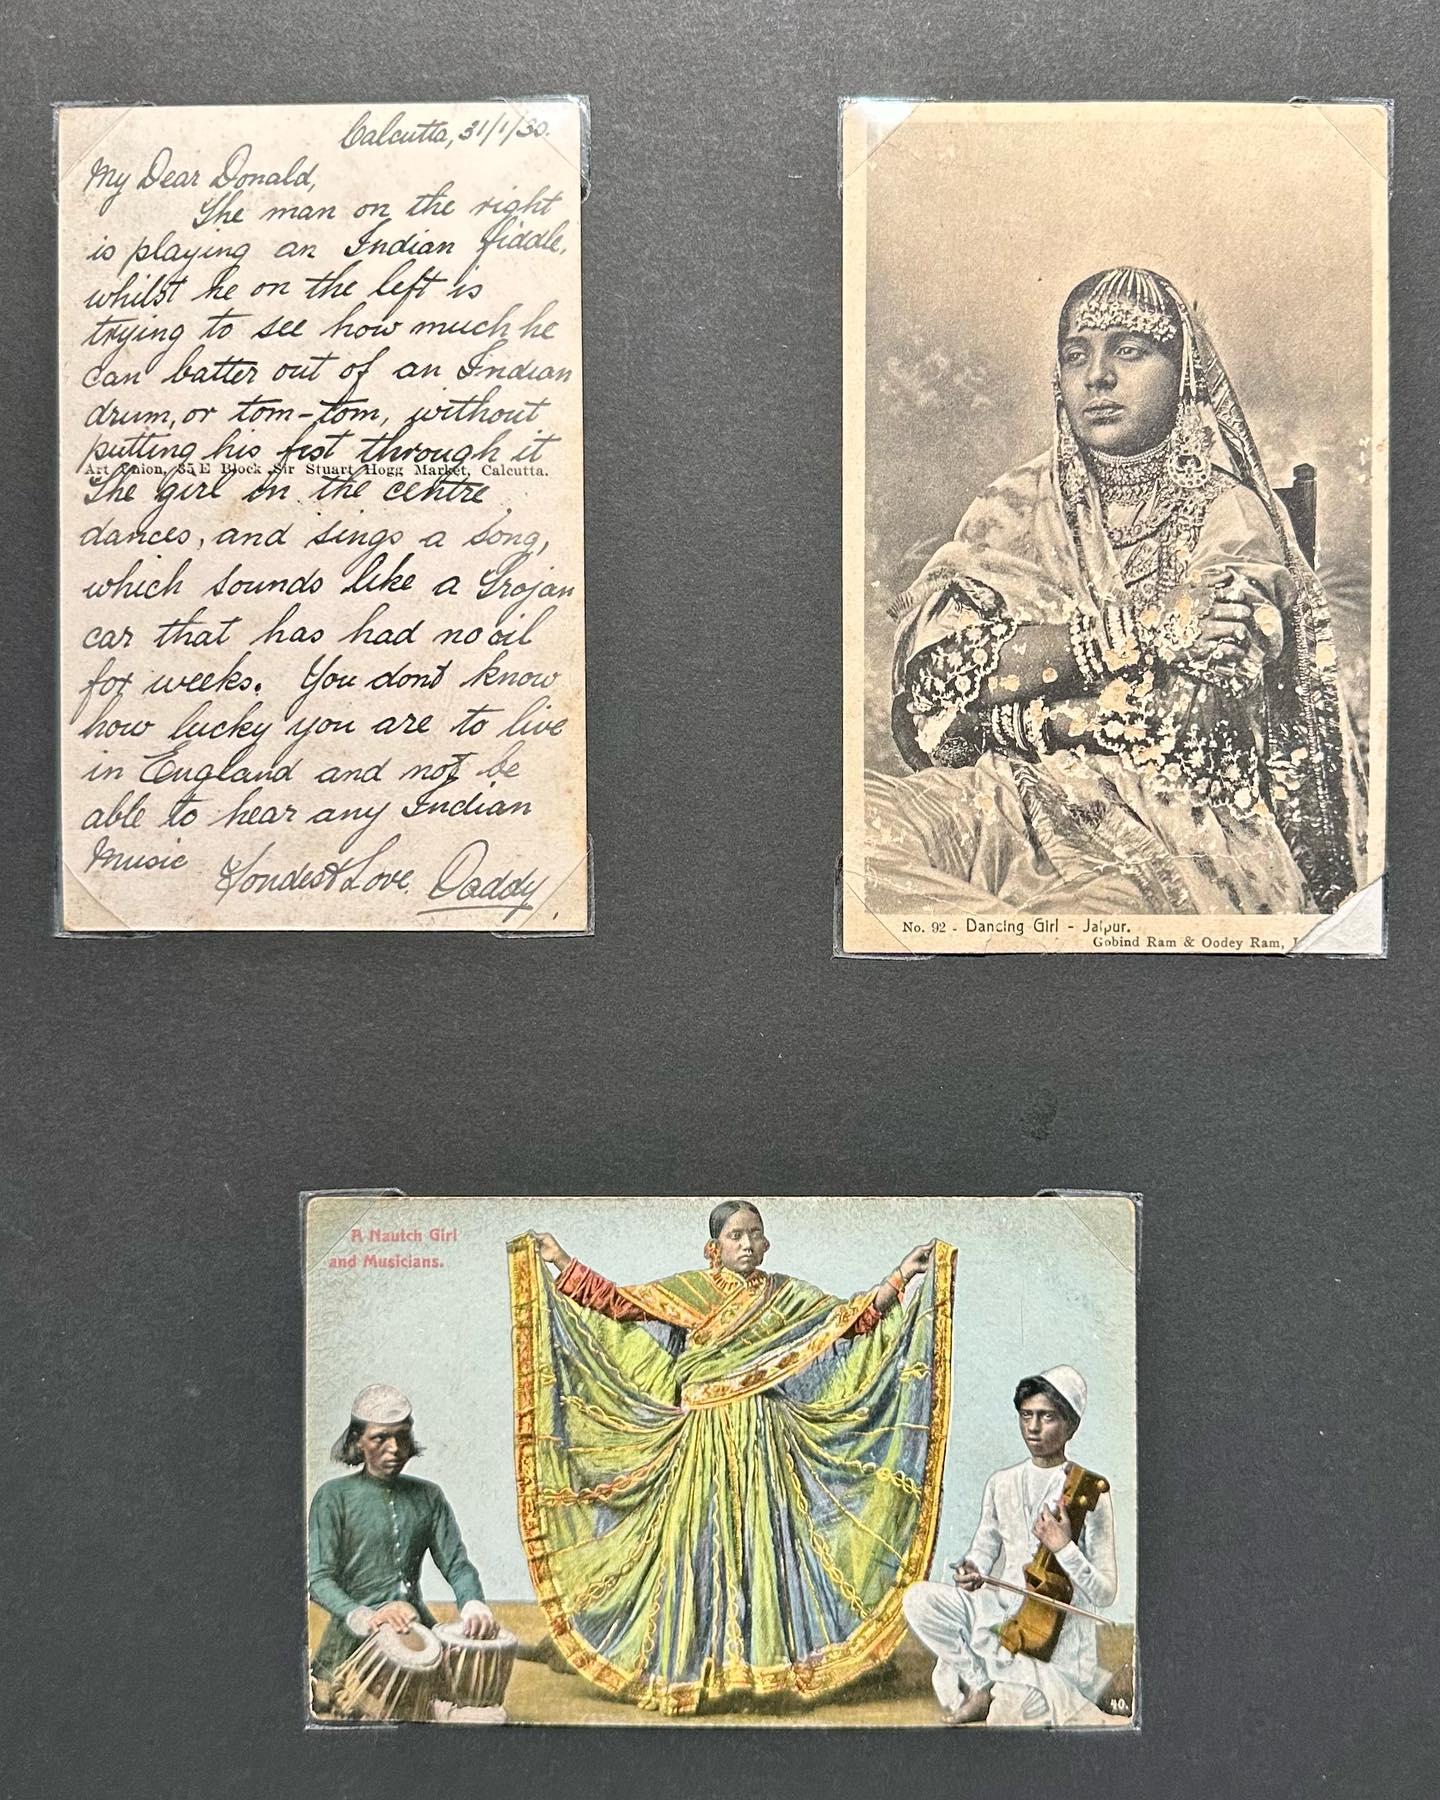 Calcutta, 31/1/30.
My Dear Donald,
The man on the right
is playing an Indian fiddle,
whilst he on the left is
trying to see how much he
can batter out of an Indian
drum, or tom-tom, without
putting his fist through it
Art Union, 35 E Block Sir Stuart Hogg Market, Calcutta.
The girl in the centre
dances, and sings a song,
which sounds like a Trojan
car that has had no oil
for weeks. You dont know
how lucky you are to live
in England and not be
able to hear any Indian
Music
Fondest Love, Daddy
No. 92 - Dancing Girl - Jaipur.
Gobind Ram & Oodey Ram,
A Nautch Girl
and Musicians.
40.